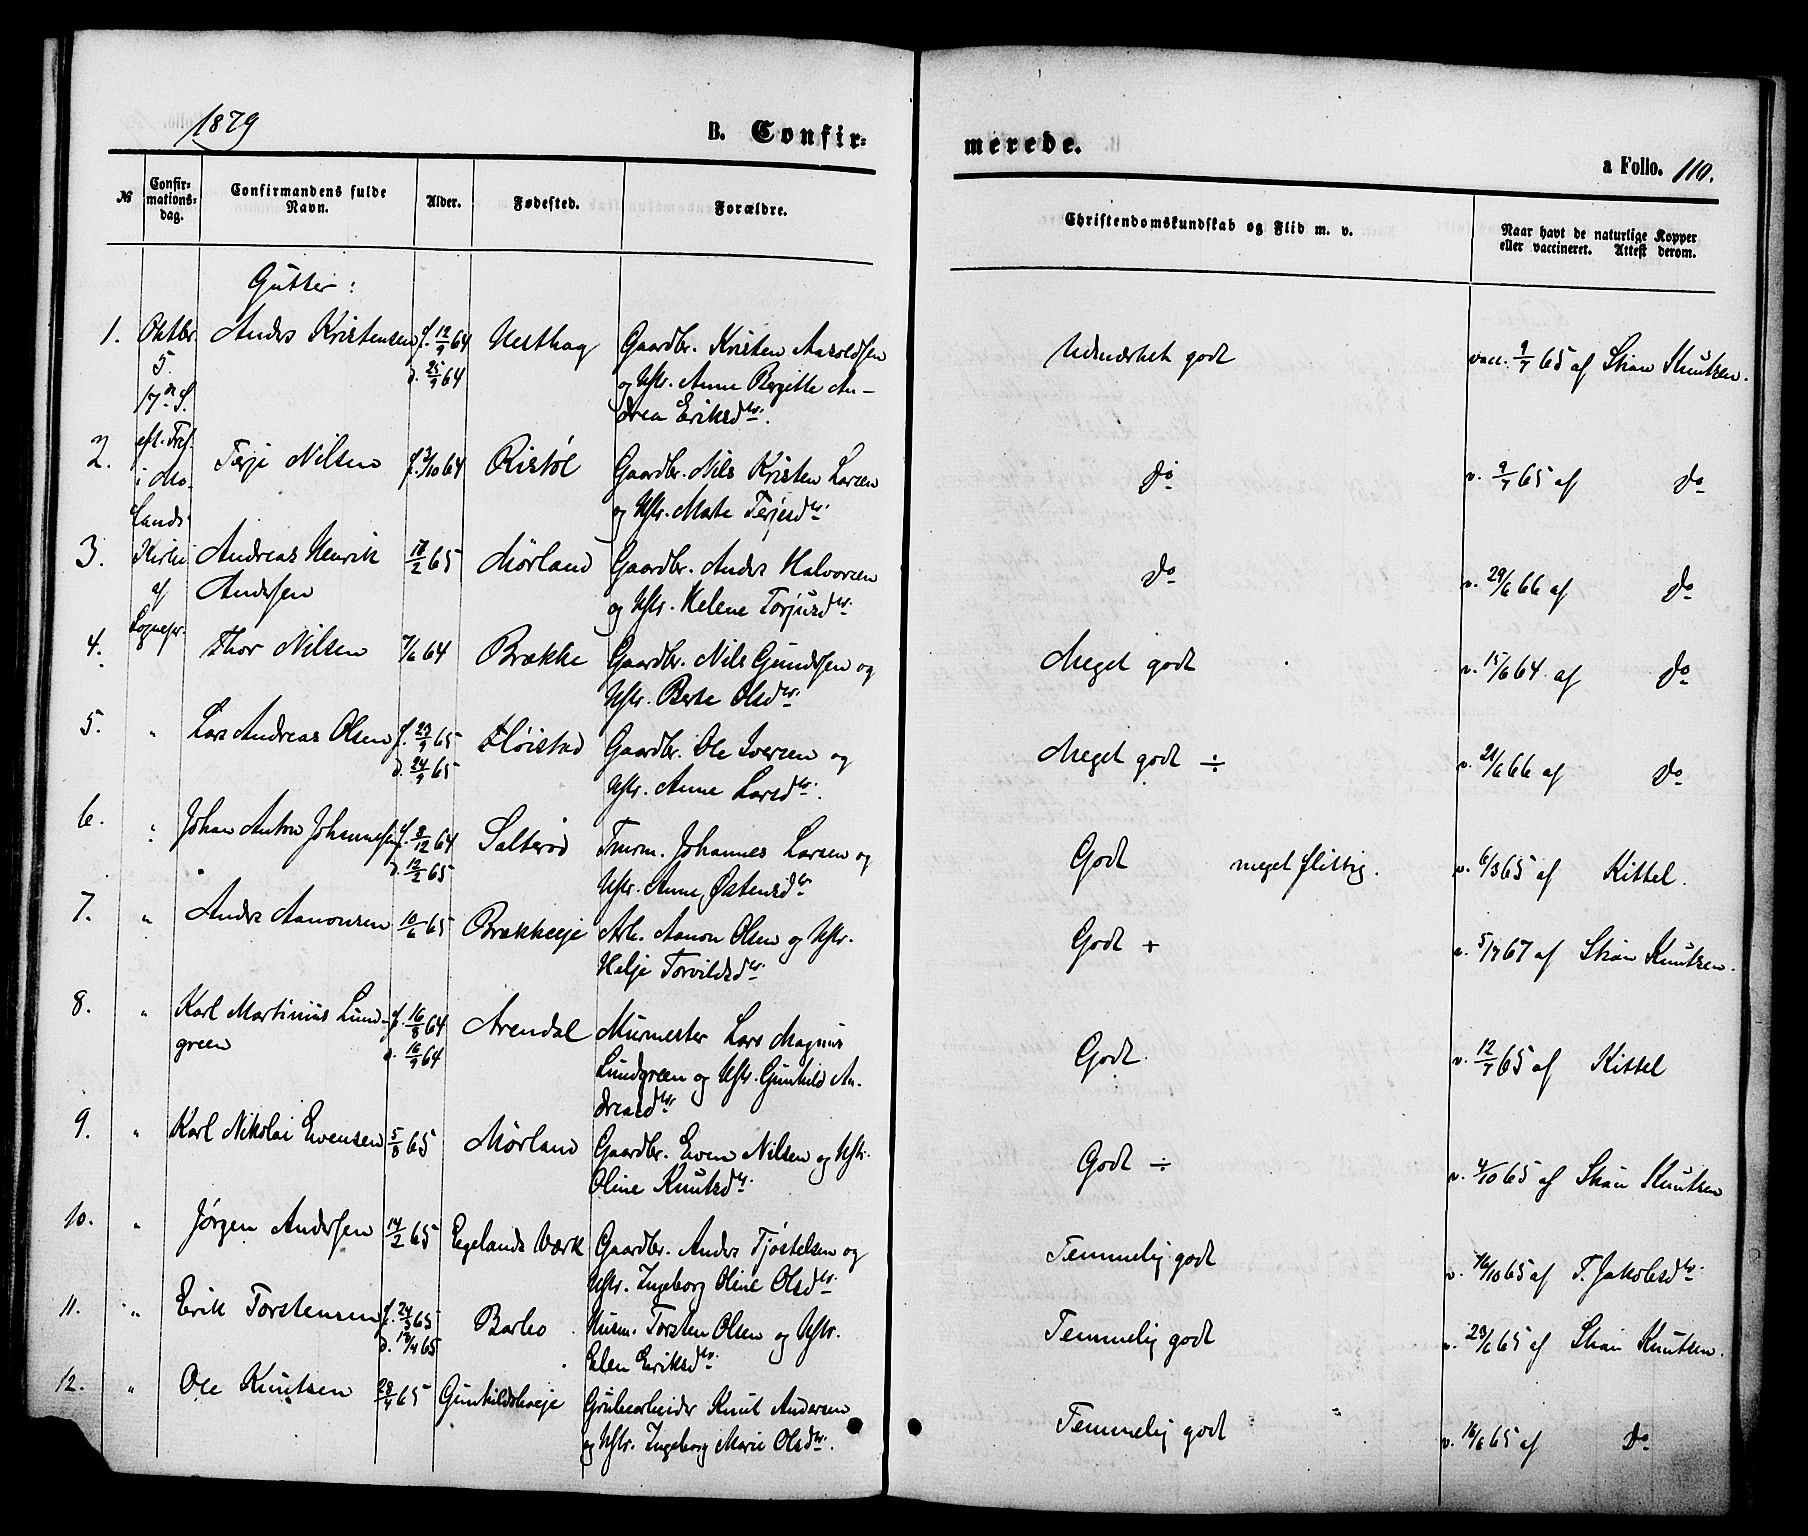 1879
B. Confir=
merede.
a Folio. 110.
№
Confir=
mations=
dag.
Confirmandens fulde
Navn.
Alder.
Fødested.
Forældre.
Christendomskundskab og Flid m. v.
Naar havt de naturlige Kopper
eller vaccineret. Attest derom.
Gutter:
1. Oktbr. Anders Kristensen f. 12/9 64 Nesthag Gaardbr. Kristen Aaroldsen Udmærket godt vacc. 9/7 65 af Skan Knutsen.
5. d. 25/9 64 og Hstr. Anne Bergitte An-
17de S. drea Eriksdtr.
2. eft. Tref. Terje Nilsen f. 3/10 64 Ristøl Gaardbr. Nils Kristen Larsen do v. 9/7 65 af do
i Mo- og Hstr. Marte Terjesdtr.
lands
3. Kirke Andreas Henrik 18/2 65 Mørland Gaardbr. Anders Halvorsen do v. 29/6 66 af do
af Andersen og Hstr. Helene Torjusdtr.
Sognepr.
4. Thor Nilsen 7/6 64 Brække Gaardbr. Nils Gundersen og Meget godt v. 15/6 64 af do
Hstr. Berte Olsdtr.
5. " Lars Andreas Olsen f. 23/9 65 Høistad Gaardbr. Ole Iversen og Meget godt ÷ v. 21/6 66 af do
d. 24/9 65 Hstr. Anne Larsdtr.
6. " Johan Anton Johannesen f. 9/12 64 Salterød Tmrm. Johannes Larsen og Godt meget flittig. v. 6/3 65 af Kittel.
d. 12/2 65 Hstr. Anne Østensdtr.
7. " Anders Aanonsen 10/6 65 Brækkeeje Arb. Aanon Olsen og Hstr. Godt + v. 5/7 67 af Skan Knutsen.
Helje Torvildsdtr.
8. " Karl Martinius Lund- f. 16/8 64 Arendal Murmester Lars Magnus Godt. v. 12/7 65 af Kittel
green d. 16/9 64 Lundgreen og Hstr. Gunhild An-
dreasdtr.
9. " Karl Nikolai Evensen 5/8 65 Mørland Gaardbr. Even Nilsen og Hstr. Godt ÷ v. 4/10 65 af Skan Knutsen
Oline Knutsdtr.
10. " Jørgen Andersen 14/2 65 Egelands Værk Gaardbr. Anders Tjøstelsen og Temmelig godt v. 16/10 65 af T. Jakobsdtr.
Hstr. Ingeborg Oline Olsdtr.
11. " Erik Torstensen f. 24/3 65 Barbo Husm. Torsten Olsen og Hstr. Temmelig godt v. 29/6 65 af Skan Knutsen.
d. 17/4 65 Elen Eriksdtr.
12. " Ole Knutsen 28/4 65 Gunhildsboeje Grubearbeider Knut Andersen Temmelig godt v. 16/6 65 af do
og Hstr. Ingeborg Marie Olsdtr.